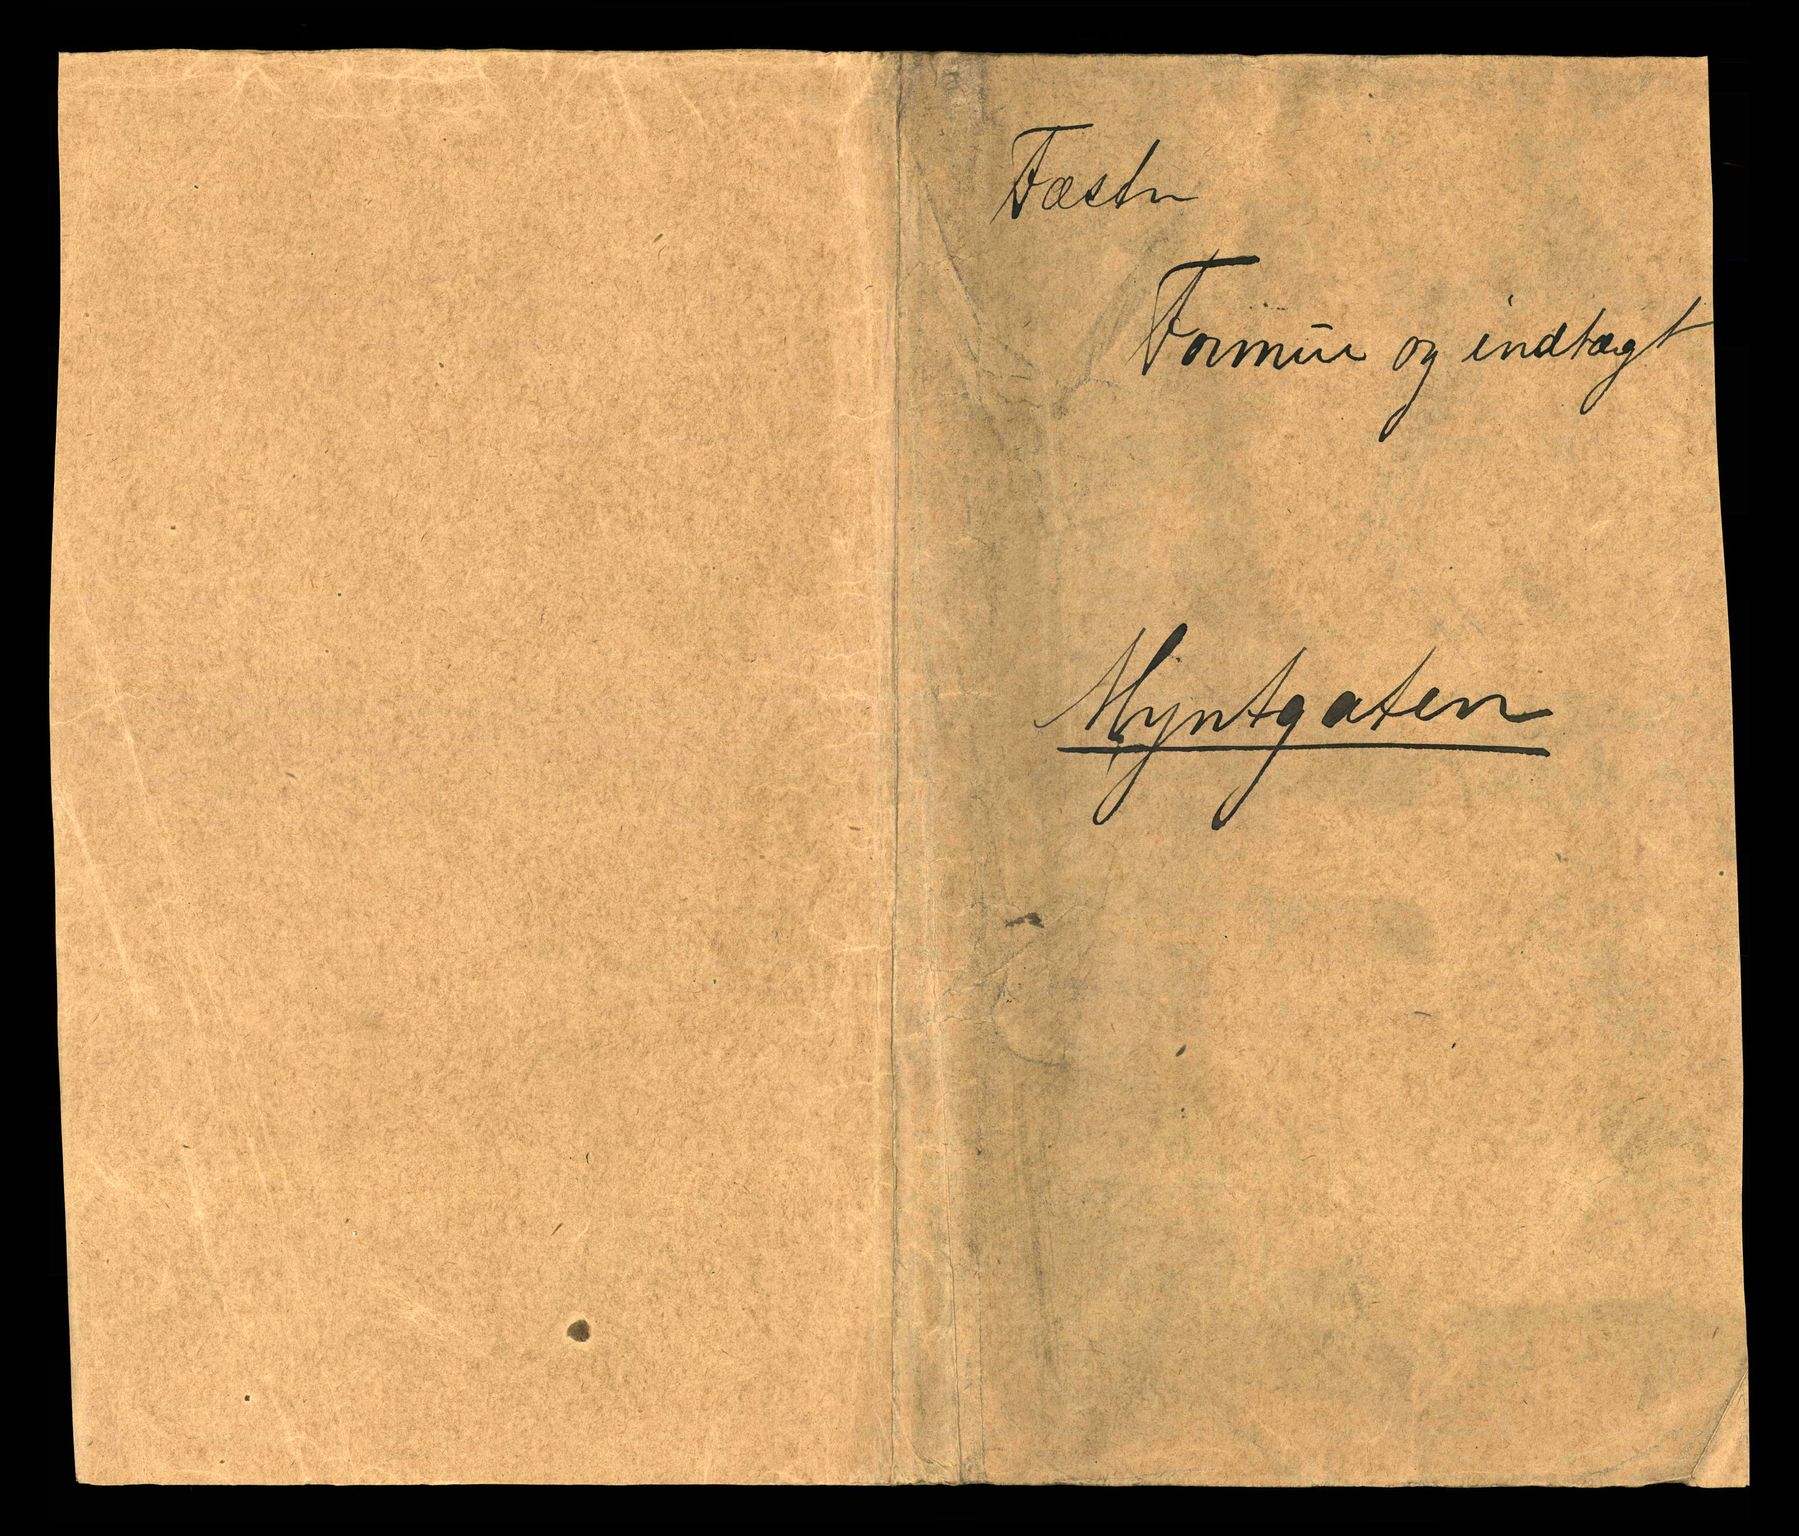 Fæstn
Formue og indtægt
Myntgaten